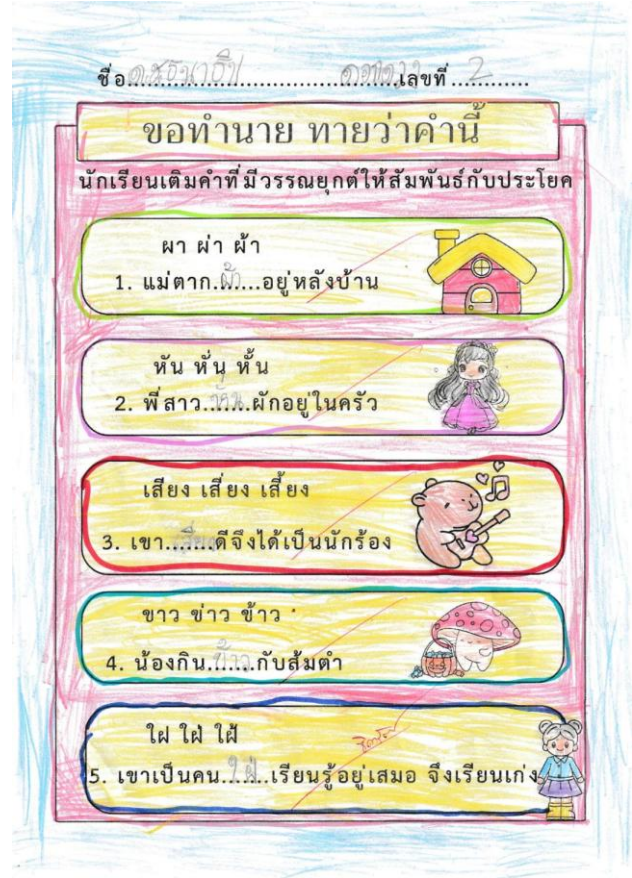 ชื่อ..........เลขที่...2...
ขอทำนาย ทายว่าคำนี้
นักเรียนเติมคำที่มีวรรณยุกต์ให้สัมพันธ์กับประโยค
ผา ผ่า ผ้า
1. แม่ตาก..ผ้า...อยู่หลังบ้าน
หัน หั่น หั้น
2. พี่สาว..หั่น..ผักอยู่ในครัว
เสียง เสี่ยง เสี้ยง
3. เขา..เสียง..ดีจึงได้เป็นนักร้อง
ขาว ข่าว ข้าว
4. น้องกิน..ข้าว..กับส้มตำ
ใผ ใผ่ ใผ้
5. เขาเป็นคน..ใฝ่..เรียนรู้อยู่เสมอ จึงเรียนเก่ง